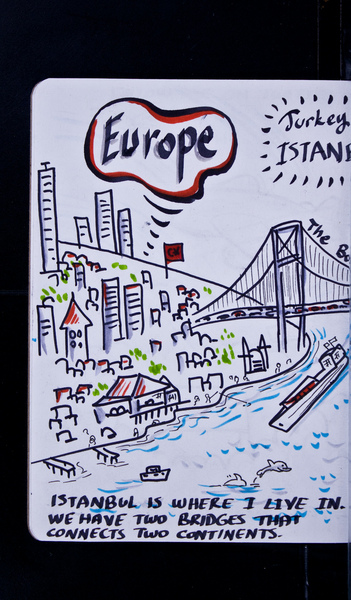 Europe
Turkey
ISTAN
The Bo
ISTANBUL IS WHERE I LIVE IN.
WE HAVE TWO BRIDGES THAT
CONNECTS TWO CONTINENTS.